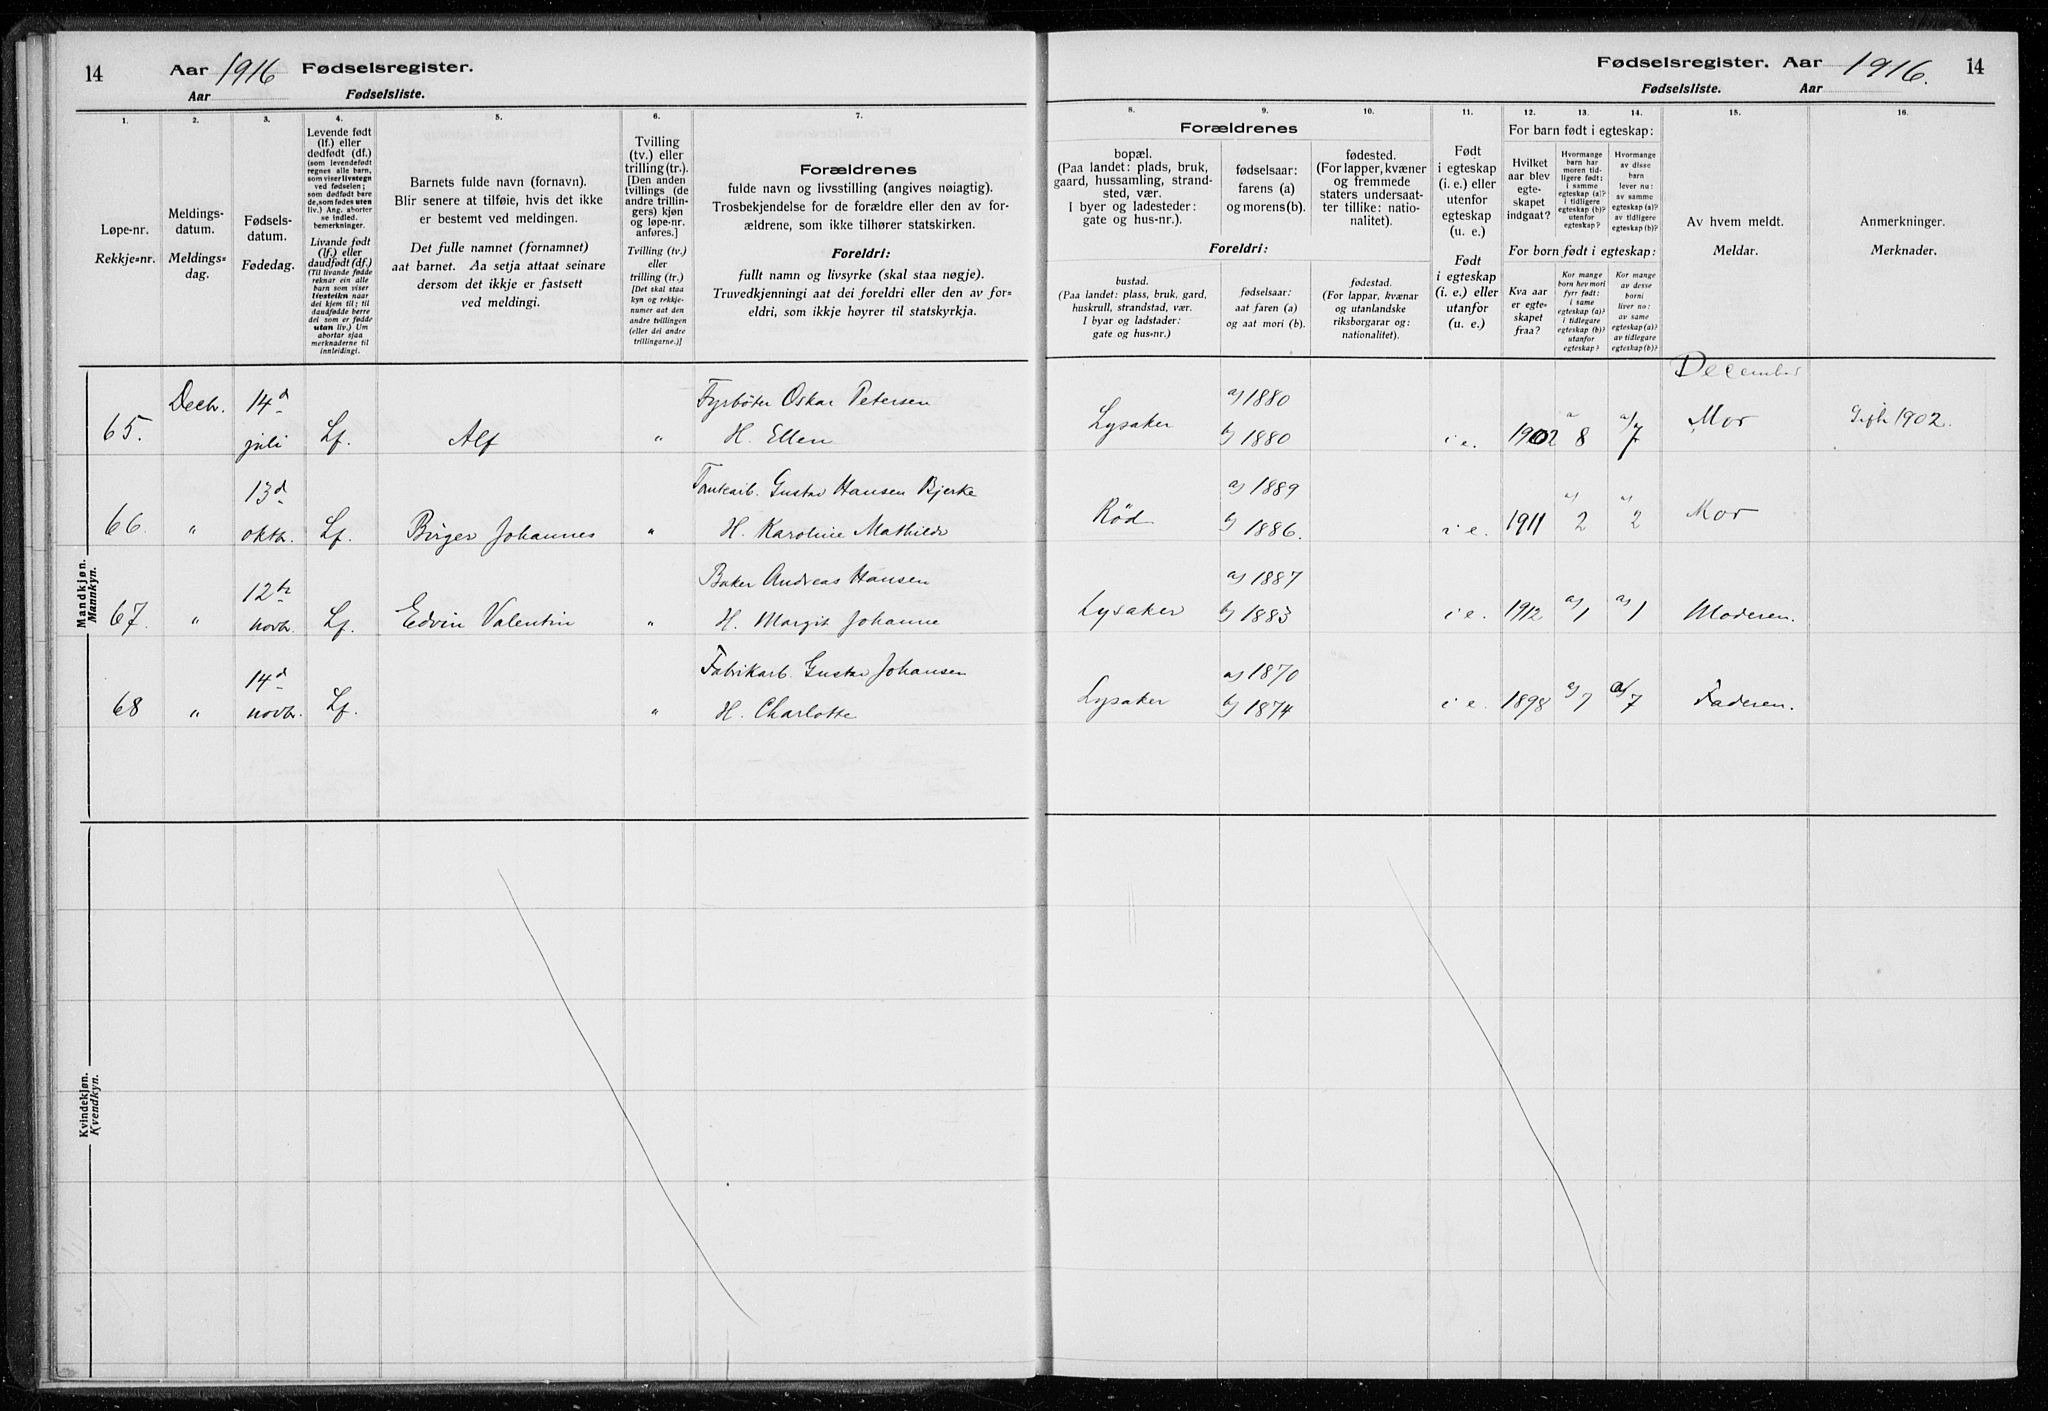 14
Aar 1916 Fødselsregister.
Aar Fødselsliste.
1.
2.
3.
4.
5.
6.
7.
Løpe-nr.
Rekkje=nr.
Meldings-
datum.
Meldings=
dag.
Fødsels-
datum.
Fødedag.
Levende født
(lf.) eller
dødfødt (df.)
(som levendefødt
regnes alle barn,
som viser livstegn
ved fødselen;
som dødfødt bare
de, som fødes uten
liv.) Ang. aborter
se indled.
bemerkninger.
Livande født
(lf.) eller
daudfødt (df.)
(Til livande fødde
reknar ein alle
barn som viser
livsteikn naar
dei kjem til; til
daudfødde berre
dei som er fødde
utan liv.) Um
abortar sjaa
merknaderne til
innleidingi.
Barnets fulde navn (fornavn).
Blir senere at tilføie, hvis det ikke
er bestemt ved meldingen.
Det fulle namnet (fornamnet)
aat barnet. Aa setja attaat seinare
dersom det ikkje er fastsett
ved meldingi.
Tvilling
(tv.) eller
trilling (tr.).
[Den anden
tvillings (de
andre trillin-
gers) kjøn
og løpe-nr.
anføres.]
Tvilling (tv.)
eller
trilling (tr.)
[Det skal staa
kyn og rekkje-
numer aat den
andre tvillingen
(eller dei andre
trillingarne.)]
Forældrenes
fulde navn og livsstilling (angives nøiagtig).
Trosbekjendelse for de forældre eller den av for-
ældrene, som ikke tilhører statskirken.
Foreldri:
fullt namn og livsyrke (skal staa nøgje).
Truvedkjenningi aat dei foreldri eller den av for=
eldri, som ikkje høyrer til statskyrkja.
Mandkjøn.
Mannkyn.
65.
Decbr.
14d
juli
Lf.
Alf
"
Fyrbøter Oskar Petersen
H. Ellen
66.
"
13d
oktbr.
Lf.
Birger Johannes
"
Tomtearb. Gustav Hansen Bjerke
H. Karoline Mathilde
67.
"
12te
novbr.
Lf.
Edvin Valentin
"
Baker Andreas Hansen
H. Margit Johanne
68
"
14d
novbr.
Lf.
"
Fabrikarb. Gustav Johansen
H. Charlotte
Kvindekjøn.
Kvendkyn.
Fødselsregister. Aar 1916.
14
Fødselsliste. Aar
8.
9.
10.
11.
12.
13.
14.
15.
16.
Forældrenes
bopæl.
(Paa landet: plads, bruk,
gaard, hussamling, strand-
sted, vær.
I byer og ladesteder:
gate og hus-nr.).
fødselsaar:
farens (a)
og morens (b).
fødested.
(For lapper, kvæner
og fremmede
staters undersaat-
ter tillike: natio-
nalitet).
Foreldri:
bustad.
(Paa landet: plass, bruk, gard,
huskrull, strandstad, vær.
I byar og ladstader:
gate og hus=nr.)
fødselsaar:
aat faren (a)
og aat mori (b).
fødestad.
(For lappar, kvænar
og utanlandske
riksborgarar og:
nationalitet).
Født
i egteskap
(i. e.) eller
utenfor
egteskap
(u. e.)
Født
i egteskap
(i. e.) eller
utanfor
(u. e.)
For barn født i egteskap:
Hvilket
aar blev
egte-
skapet
indgaat?
Hvormange
barn har
moren tid-
ligere født:
i samme
egteskap (a)?
i tidligere
egteskap (b)?
utenfor
egteskap?
Hvormange
av disse
barn
lever nu:
av samme
egteskap (a)?
av tidligere
egteskap (b)?
For born født i egteskap:
Kva aar
er egte=
skapet
fraa?
Kor mange
born hev mori
fyrr født:
i same
egteskap (a)?
i tidlegare
egteskap (b)?
utanfor
egteskap?
Kor mange
av desse
borni
liver no:
av same
egteskap (a)?
av tidlegare
egteskap (b)?
Av hvem meldt.
Meldar.
Anmerkninger.
Merknader.
December
Lysaker
a) 1880
b) 1880
i e.
1902
a
8
a)
7
Mor
Gift 1902.
Rød
a) 1889
b) 1886.
i e.
1911
a)
2
a)
2
Mor
Lysaker
a) 1887
b) 1883
i e.
1912
a) 1
a) 1
Moderen.
Lysaker
a) 1870
b) 1874
i e.
1898
a) 7
a) 7
Faderen.